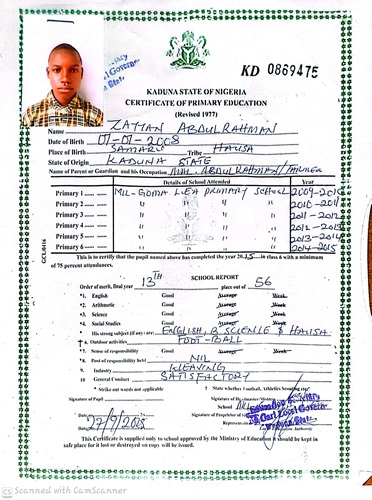 KD 0869475
KADUNA STATE OF NIGERIA
CERTIFICATE OF PRIMARY EDUCATION
(Revised 1977)
Name ZAYYAN ABDULRAHMAN
Date of Birth 07-07-2003
Place of Birth SAMARU Tribe HAUSA
State of Origin KADUNA STATE
Name of Parent or Guardian and his Occupation MAL. ABDULRAHMAN/
Details of School Attended Year
Primary 1 MIL-GOMA LEA PRIMARY SCHOOL 2009-2010
Primary 2 2010-2011
Primary 3 2011-2012
Primary 4 2012-2013
Primary 5 2013-2014
Primary 6 2014-2015
This is to certify that the pupil named above has completed the year 2015 in class 6 with a minimum
of 75 percent attendances.
SCHOOL REPORT
Order of merit, final year 13TH place out of 56
*1. English Good Average Weak
*2. Arithmetic Good Average Weak
*3. Science Good Average Weak
*4. Social Studies Good Average Weak
His strong subject (if any) are: ENGLISH, B SCIENCE & HAUSA
† 6. Outdoor activities FOOT-BALL
*7. Sense of responsibility Good Average Weak
*8. Post of responsibility held NIL
9. Industry WEAVING
10 General Conduct SATISFACTORY
* Strike out words not applicable † State whether Football, Athletics Scouting etc.
Signature of Pupil Signature of Headmaster/Mistress
Signature of Proprietor of
Date
This Certificate is supplied only to school approved by the Ministry of Education it should be kept in
safe place for if lost or destroyed no copy will be issued.
CS Scanned with CamScanner